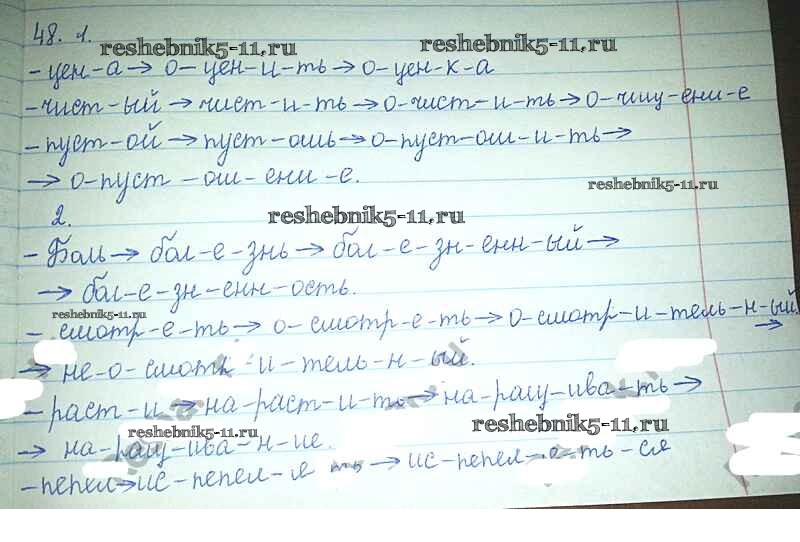 48. 1.
reshebnik5-11.ru reshebnik5-11.ru
- цен-а → о-цен-и-ть → о-цен-к-а
- чист-ый → чист-и-ть → о-чист-и-ть → о-чищ-ени-е
- пуст-ой → пуст-ошь → о-пуст-ош-и-ть →
→ о-пуст-ош-ени-е.
reshebnik5-11.ru
2. reshebnik5-11.ru
- Боль → бол-е-знь → бол-е-зн-енн-ый →
→ бол-е-зн-енн-ость.
reshebnik5-11.ru
- смотр-е-ть → о-смотр-е-ть → о-смотр-и-тель-н-ый →
→ не-о-смотр-и-тель-н-ый.
- раст-и → на-раст-и-ть → на-ращ-ива-ть →
reshebnik5-11.ru reshebnik5-11.ru
→ на-ращ-ива-н-ие.
- пепел → ис-пепел-я ть → ис-пепел-я-ть-ся